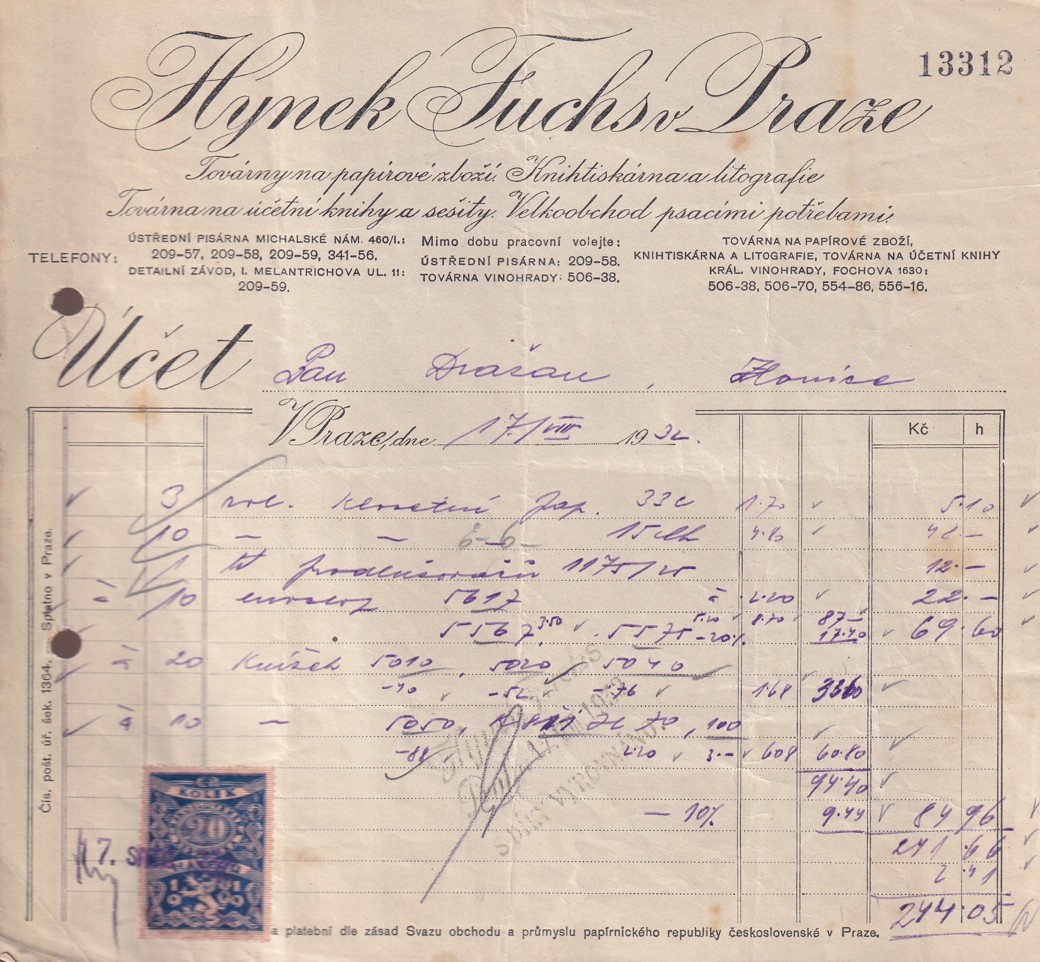 13312
Hynek Fuchs v Praze
Továrny na papírové zboží. Knihtiskárna a litografie
Továrna na účetní knihy a sešity. Velkoobchod psacími potřebami.
TELEFONY:
ÚSTŘEDNÍ PISÁRNA MICHALSKÉ NÁM. 460/I.:
209-57, 209-58, 209-59, 341-56.
DETAILNÍ ZÁVOD, I. MELANTRICHOVA UL. 11:
209-59.
Mimo dobu pracovní volejte:
ÚSTŘEDNÍ PISÁRNA: 209-58.
TOVÁRNA VINOHRADY: 506-38.
TOVÁRNA NA PAPÍROVÉ ZBOŽÍ,
KNIHTISKÁRNA A LITOGRAFIE, TOVÁRNA NA ÚČETNÍ KNIHY
KRÁL. VINOHRADY, FOCHOVA 1630:
506-38, 506-70, 554-86, 556-16.
Účet
Pan Dražan,
V Praze, dne 17/VIII 1932.
Kč h
3 rol. pap. 33c 1.70 5.10
10 — — 4.80 —
1 1175/25 12.—
à 10 5617 à 2.20 22.—
5567 3.50 5575 5.20 -20% 8.70 87— 17.40 69.60
à 20 Knížek 5010, 5020, 5040
-40 -52 -76 1.68 33.60
à 10 — 5050, 70, 100
-88 2.20 3.— 6.08 60.80
94.40
— 10% 9.44 84.96
241.66
2.41
244.05
Čís. pošt. úř. šek. 1364. — Splatno v Praze.
KOLEK
20
HALÉŘŮ
a platební dle zásad Svazu obchodu a průmyslu papírnického republiky československé v Praze.